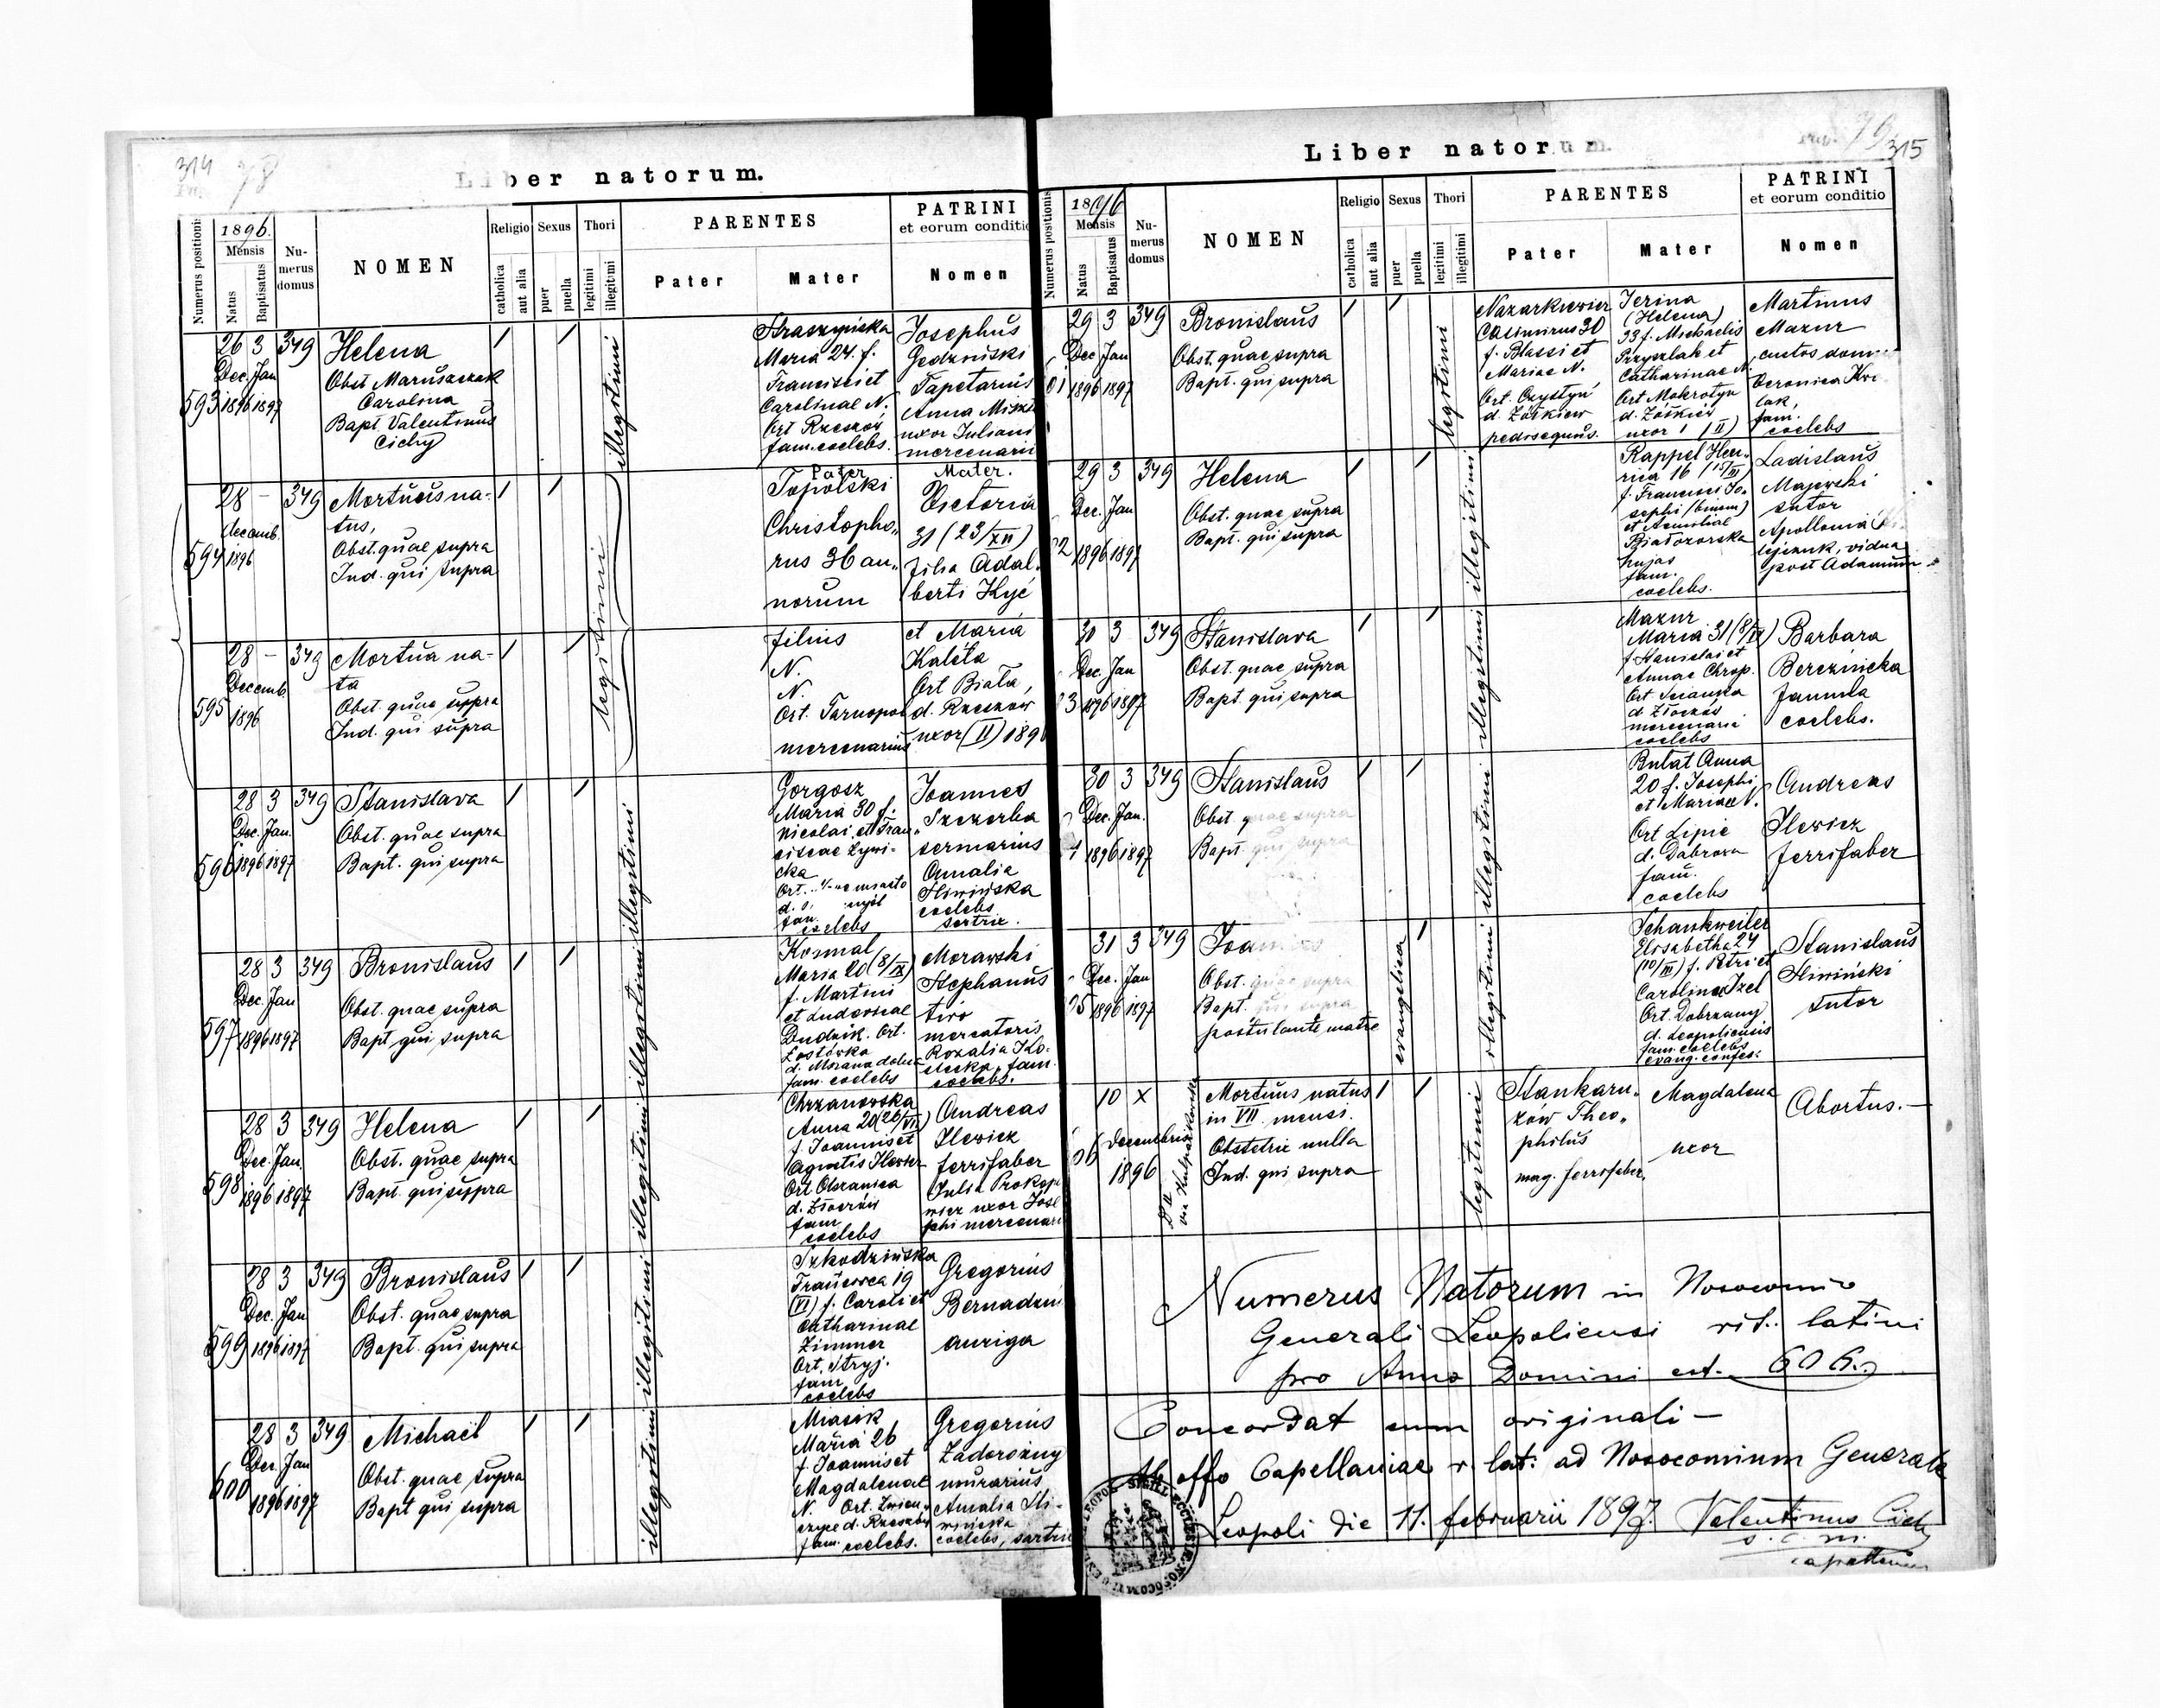 314 78
Liber natorum.
Numerus positionis
1896.
Mensis
Natus
Baptisatus
Numerus domus
NOMEN
Religio
catholica
aut alia
Sexus
puer
puella
Thori
legitimi
illegitimi
PARENTES
Pater
Mater
PATRINI
et eorum conditio
Nomen
593
26 Dec. 1896
3 Jan 1897
349
Helena
Obst Maruszczak
Carolina
Bapt. Valentinus
Cichy
illegitimi
Straszyńska
Maria 24. f.
Francisci et
Carolinae N.
Ort Rzeszów
fam. coelebs.
Josephus
Gedziński
Tapetarius
Anna
uxor Juliani
mercenarii
594
28 –
decemb.
1896
349
Mortuus na-
tus,
Obst. quae supra
Ind. qui supra
legitimi
Pater
Topolski
Christopho-
rus 36 an-
norum
Mater.
Victoria
31 (23/XII)
filia Adal-
berti Kyć
595
28 –
Decemb.
1896
349
Mortua na-
ta
Obst. quae supra
Ind. qui supra
filius
N.
N.
Ort. Tarnopol
mercenarius
et Maria
Kaleta
Ort Biała,
d. Rzeszów
uxor (II) 189
596
28 Dec. 1896
3 Jan. 1897
349
Stanislava
Obst. quae supra
Bapt. qui supra
illegitimi
Gorgosz
Maria 30 f.
Nicolai et Fran-
ciscae Żywi-
cka
Ort. miasto
d.
fam.
coelebs
Joannes
Szczerba
Amalia
Śliwińska
coelebs
sartrix.
597
28 Dec. 1896
3 Jan 1897
349
Bronislaus
Obst. quae supra
Bapt. qui supra
illegitimi
Kosmal
Maria 20 (8/IX)
f. Martini
et Ludovicae
Dudzik. Ort.
Łostówka
d. Mszana dolna
fam. coelebs
Morawski
Stephanus
tiro
mercatoris
Rozalia Ko-
fam.
coelebs.
598
28 Dec. 1896
3 Jan. 1897
349
Helena
Obst. quae supra
Bapt. qui supra
illegitimi
Chrzanowska
Anna 20 (26/VI)
f. Joannis et
Agnetis Ilewicz
Ort Olszanica
d. Złoczów
fam
coelebs
Andreas
Ilewicz
ferrifaber
Julia Prokop
wicz uxor Jose
phi mercenari
599
28 Dec. 1896
3 Jan 1897
349
Bronislaus
Obst. quae supra
Bapt. qui supra
illegitimi
Szkodzińska
Francisca 19
(VI) f. Caroli et
Catharinae
Zimmer
Ort. Stryj.
fam
coelebs
Gregorius
auriga
600
28 Dec. 1896
3 Jan 1897
349
Michael
Obst. quae supra
Bapt qui supra
illegitimi
Miasik
Maria 26
f. Joannis et
Magdalenae
N. Ort.
d. Rzeszów
fam. coelebs.
Gregorius
Zadorożny
murarius
Amalia Śli-
wińska
coelebs, sartrix
79 315
Liber natorum.
Numerus positionis
1896
Mensis
Natus
Baptisatus
Numerus domus
NOMEN
Religio
catholica
aut alia
Sexus
puer
puella
Thori
legitimi
illegitimi
PARENTES
Pater
Mater
PATRINI
et eorum conditio
Nomen
01
29 Dec 1896
3 Jan 1897
349
Bronislaus
Obst. quae supra
Bapt. qui supra
legitimi
Nazarkiewicz
Casimirus 30
f. Blasii et
Mariae N.
Ort.
d. Żółkiew
pedisequus.
Irina
(Helena)
33 f. Michaelis
Przyszlak et
Catharinae N.
Ort Mokrotyn
d. Żółkiew
uxor (II)
Martinus
Mazur
custos domus
Veronica
lak,
fam.
coelebs
2
29 Dec. 1896
3 Jan 1897
349
Helena
Obst. quae supra
Bapt. qui supra
illegitimi
Rappel Hen-
rica 16 (15/VII)
f. Francisci Jo-
sephi (binom)
et Aemiliae
Białozorska
hujas
fam.
coelebs.
Ladislaus
Majewski
sutor
Apollonia
vidua
post Adamum
3
30 Dec. 1896
3 Jan 1897
349
Stanislava
Obst. quae supra
Bapt. qui supra
illegitimi
Mazur
Maria 31 (8/IX)
f. Stanislai et
Annae Chrap.
Ort Scianka
d. Złoczów
mercenaria
coelebs
Barbara
Berezińcka
famula
coelebs.
30 Dec. 1896
3 Jan. 1897
349
Stanislaus
Obst. quae supra
Bapt. qui supra
illegitimi
Bułat Anna
20 f. Josephi
et Mariae N.
Ort Lipie
d. Dabrowa
fam.
coelebs
Andreas
Ilewicz
ferrifaber
5
31 Dec. 1896
3 Jan 1897
349
Joannes
Obst. quae supra
Bapt. qui supra
postulante matre
evangelica
illegitimi
Schankweiler
Elisabetha 24
(10/III) f. Petri et
Carolinae Izel
Ort. Dobrzany
d. Leopoliensis
fam. coelebs
evang. confess.
Stanislaus
Śliwiński
sutor
06
10 x
decembris
1896
Mortuus natus
in VII mensi.
Obstetrix nulla
Ind. qui supra
legitimi
Stankaru-
ków Theo-
philus
mag. ferrifaber.
Magdalena
uxor
Abortus.—
Numerus Natorum in Nosocomio
Generali Leopoliensi rit. latini
pro Anno Domini est. 606.
Concordat cum originali —
Ab offo Capellaniae r. lat: ad Nosocomium Generale
Leopoli die 11. februarii 1897. Valentinus Cichy